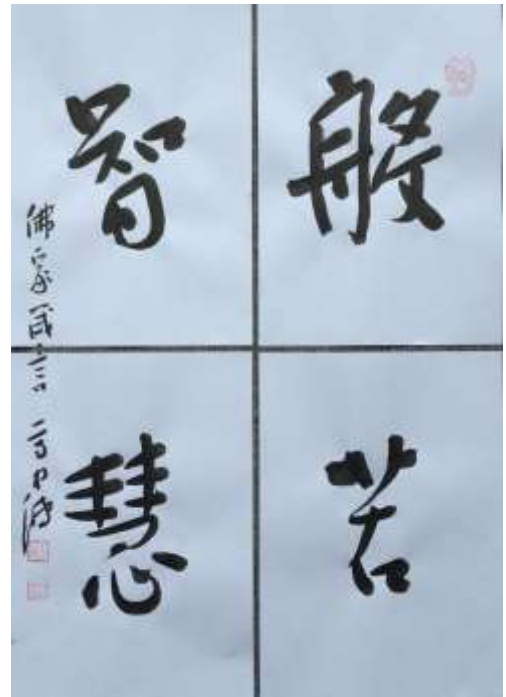 般若
智慧
佛家箴言